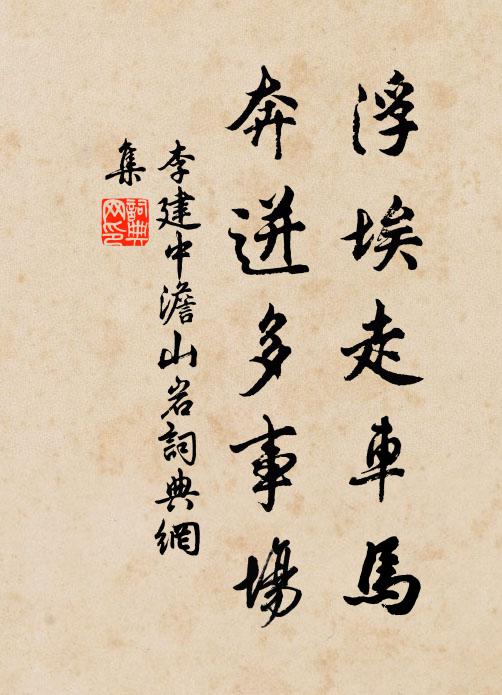 浮埃走車馬
奔迸多事場
李建中澹山岩詞典網
集
詞典網印